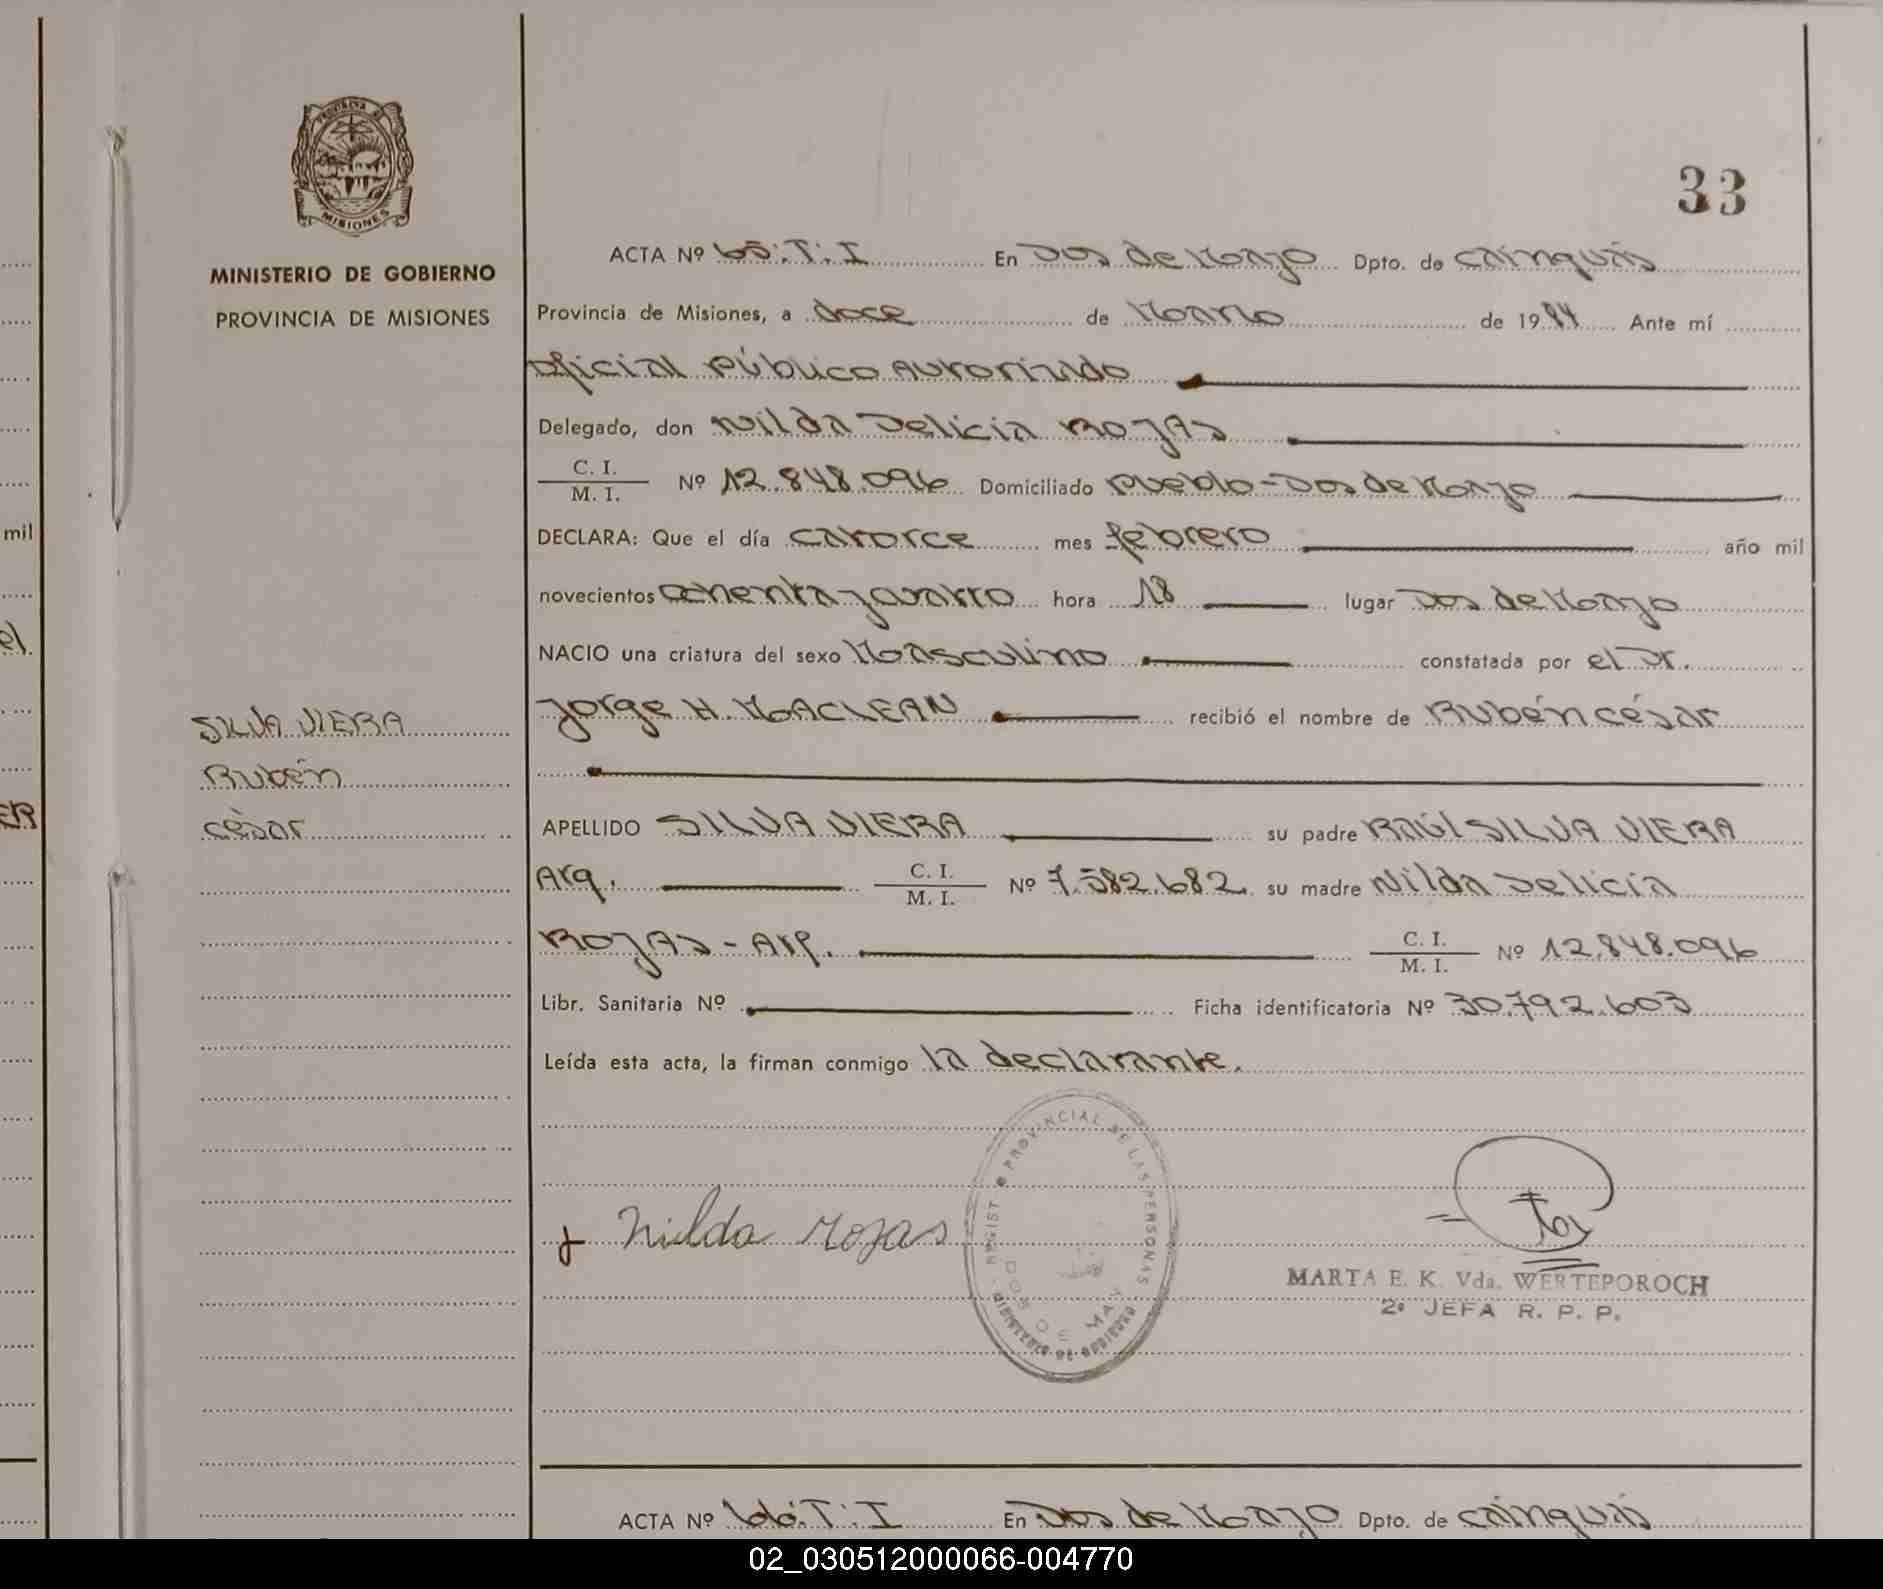 33
MINISTERIO DE GOBIERNO
PROVINCIA DE MISIONES
ACTA Nº 65:T:I En Dos de Mayo Dpto. de Cainguás
Provincia de Misiones, a doce de Marzo de 1984 Ante mí
Oficial Público Autorizado
Delegado, don Nilda Delicia ROJAS
C. I. / M. I. Nº 12.848.096 Domiciliado Pueblo-Dos de Mayo
DECLARA: Que el día catorce mes febrero año mil
novecientos ochenta y cuatro hora 18 lugar Dos de Mayo
NACIO una criatura del sexo Masculino constatada por el Dr.
Jorge H. MACLEAN recibió el nombre de Rubén césar
SILVA VIERA
Rubén
césar
APELLIDO SILVA VIERA su padre RAÚl SILVA VIERA
Arg. C. I. / M. I. Nº 7.582.682 su madre Nilda Delicia
ROJAS - Arg. C. I. / M. I. Nº 12.848.096
Libr. Sanitaria Nº Ficha identificatoria Nº 30.792.603
Leída esta acta, la firman conmigo la declarante.
Nilda Rojas
PROVINCIAL DE LAS PERSONAS
DOS DE MAY
MINISTERIO DE GOBIERNO
MARTA E. K. Vda. WERTEPOROCH
2º JEFA R. P. P.
ACTA Nº 66:T:I En Dos de Mayo Dpto. de cainguás
mil
el.
ER
PROVINCIA D
MISIONES
02_030512000066-004770